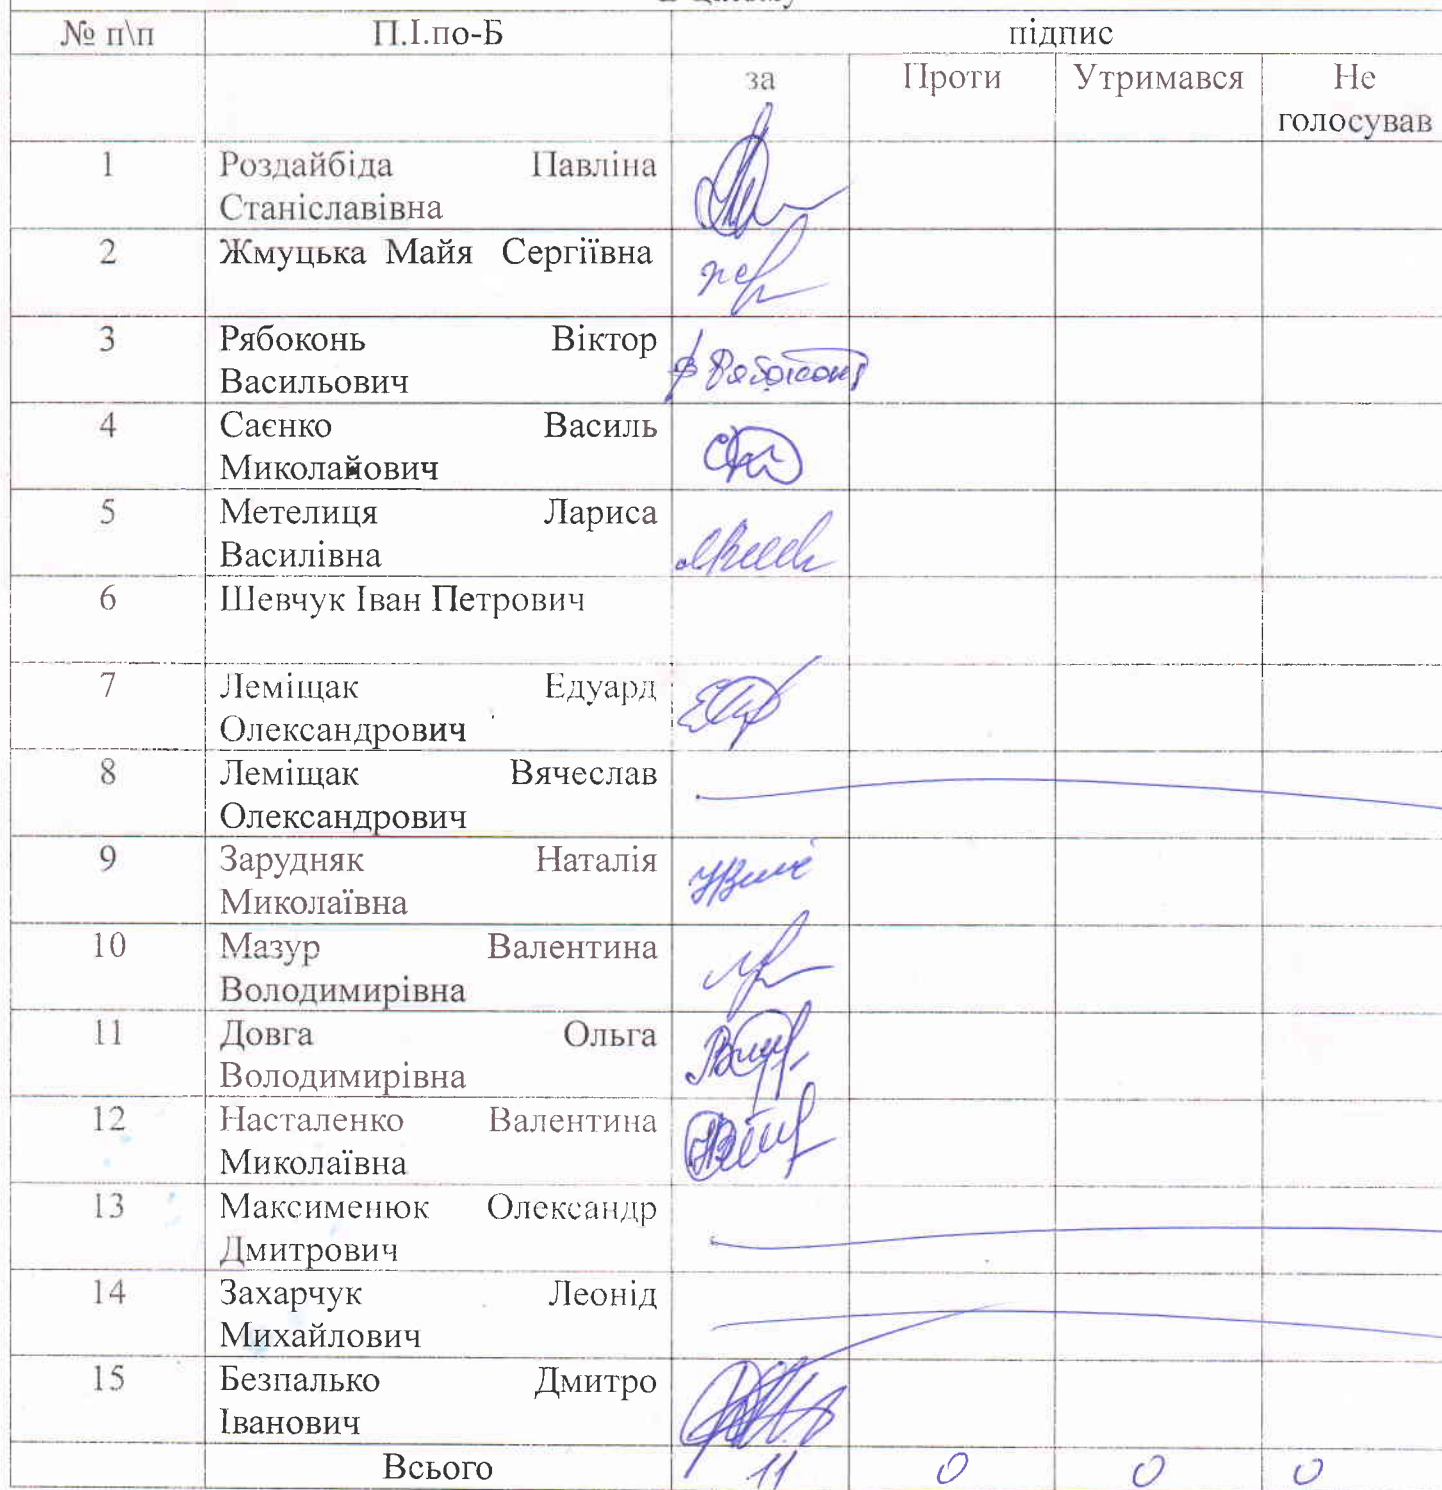 № п\п П.І.по-Б підпис
за Проти Утримався Не
голосував
1 Роздайбіда Павліна
Станіславівна
2 Жмуцька Майя Сергіївна
3 Рябоконь Віктор
Васильович
4 Саєнко Василь
Миколайович
5 Метелиця Лариса
Василівна
6 Шевчук Іван Петрович
7 Леміщак Едуард
Олександрович
8 Леміщак Вячеслав
Олександрович
9 Зарудняк Наталія
Миколаївна
10 Мазур Валентина
Володимирівна
11 Довга Ольга
Володимирівна
12 Насталенко Валентина
Миколаївна
13 Максименюк Олександр
Дмитрович
14 Захарчук Леонід
Михайлович
15 Безпалько Дмитро
Іванович
Всього 11 0 0 0